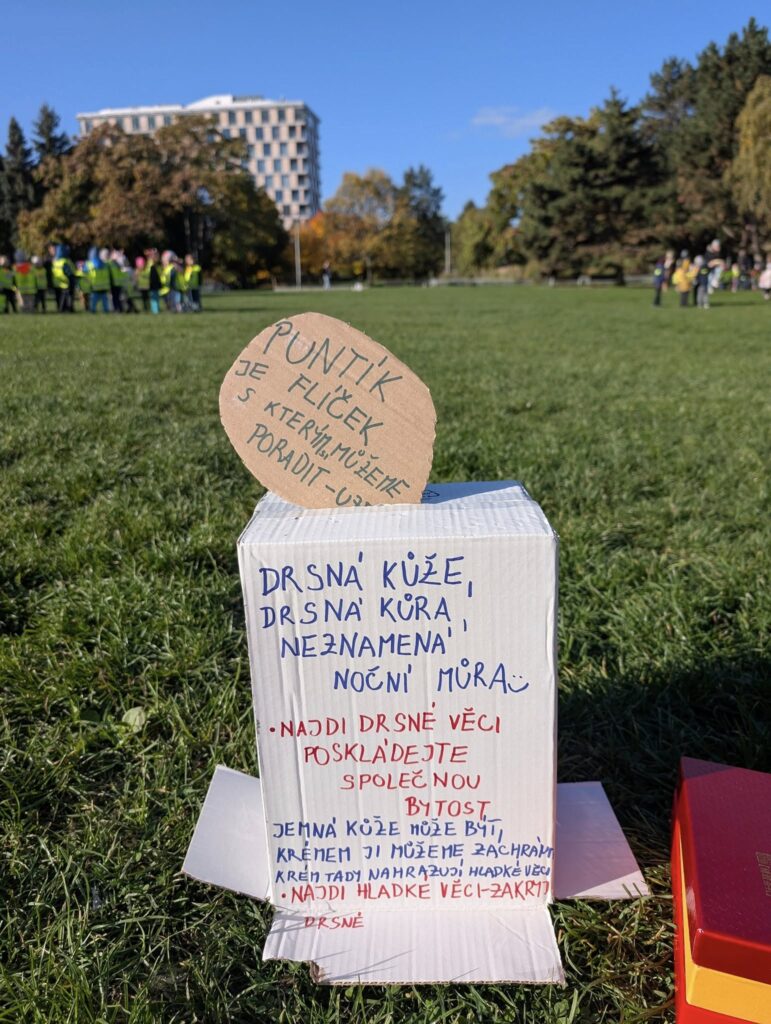 PUNTÍK
JE FLÍČEK
S KTERÝM MŮŽEME
PORADIT -
DRSNÁ KŮŽE,
DRSNÁ KŮRA,
NEZNAMENÁ
NOČNÍ MŮRA
• NAJDI DRSNÉ VĚCI
POSKLÁDEJTE
SPOLEČNOU
BYTOST
JEMNÁ KŮŽE MŮŽE BÝT,
KRÉMEM JI MŮŽEME ZACHRÁNIT
KRÉM TADY NAHRAZUJÍ HLADKÉ VĚCI
• NAJDI HLADKÉ VĚCI - ZAKRYJ
DRSNÉ